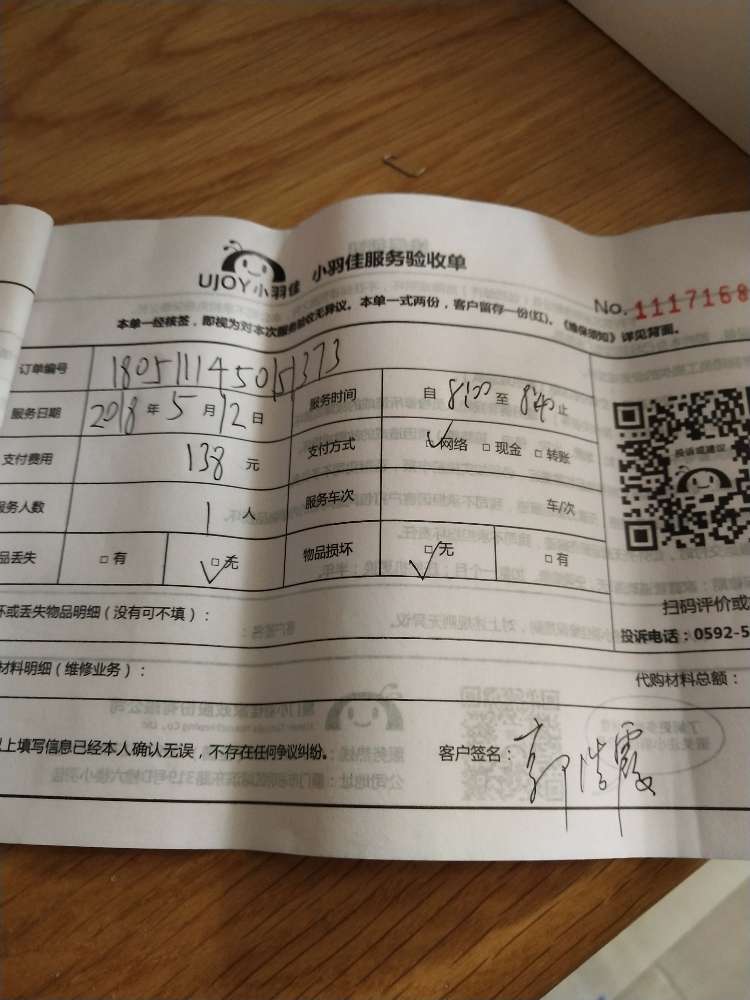 UJOY小羽佳 小羽佳服务验收单
No. 1117168
本单一经核签，即视为对本次服务验收无异议。本单一式两份，客户留存一份(红)。《维保须知》详见背面。
订单编号 180511145051373
服务日期 2018年5月12日 服务时间 自 8:00 至 8:40 止
支付费用 138 元 支付方式 ☑网络 □现金 □转账
服务人数 1 人 服务车次 车/次
品丢失 □有 ☑无 物品损坏 ☑无 □有
投诉或建议
扫码评价或
坏或丢失物品明细（没有可不填）：
投诉电话：0592-5
材料明细（维修业务）： 代购材料总额：
以上填写信息已经本人确认无误，不存在任何争议纠纷。 客户签名：郭浩霞